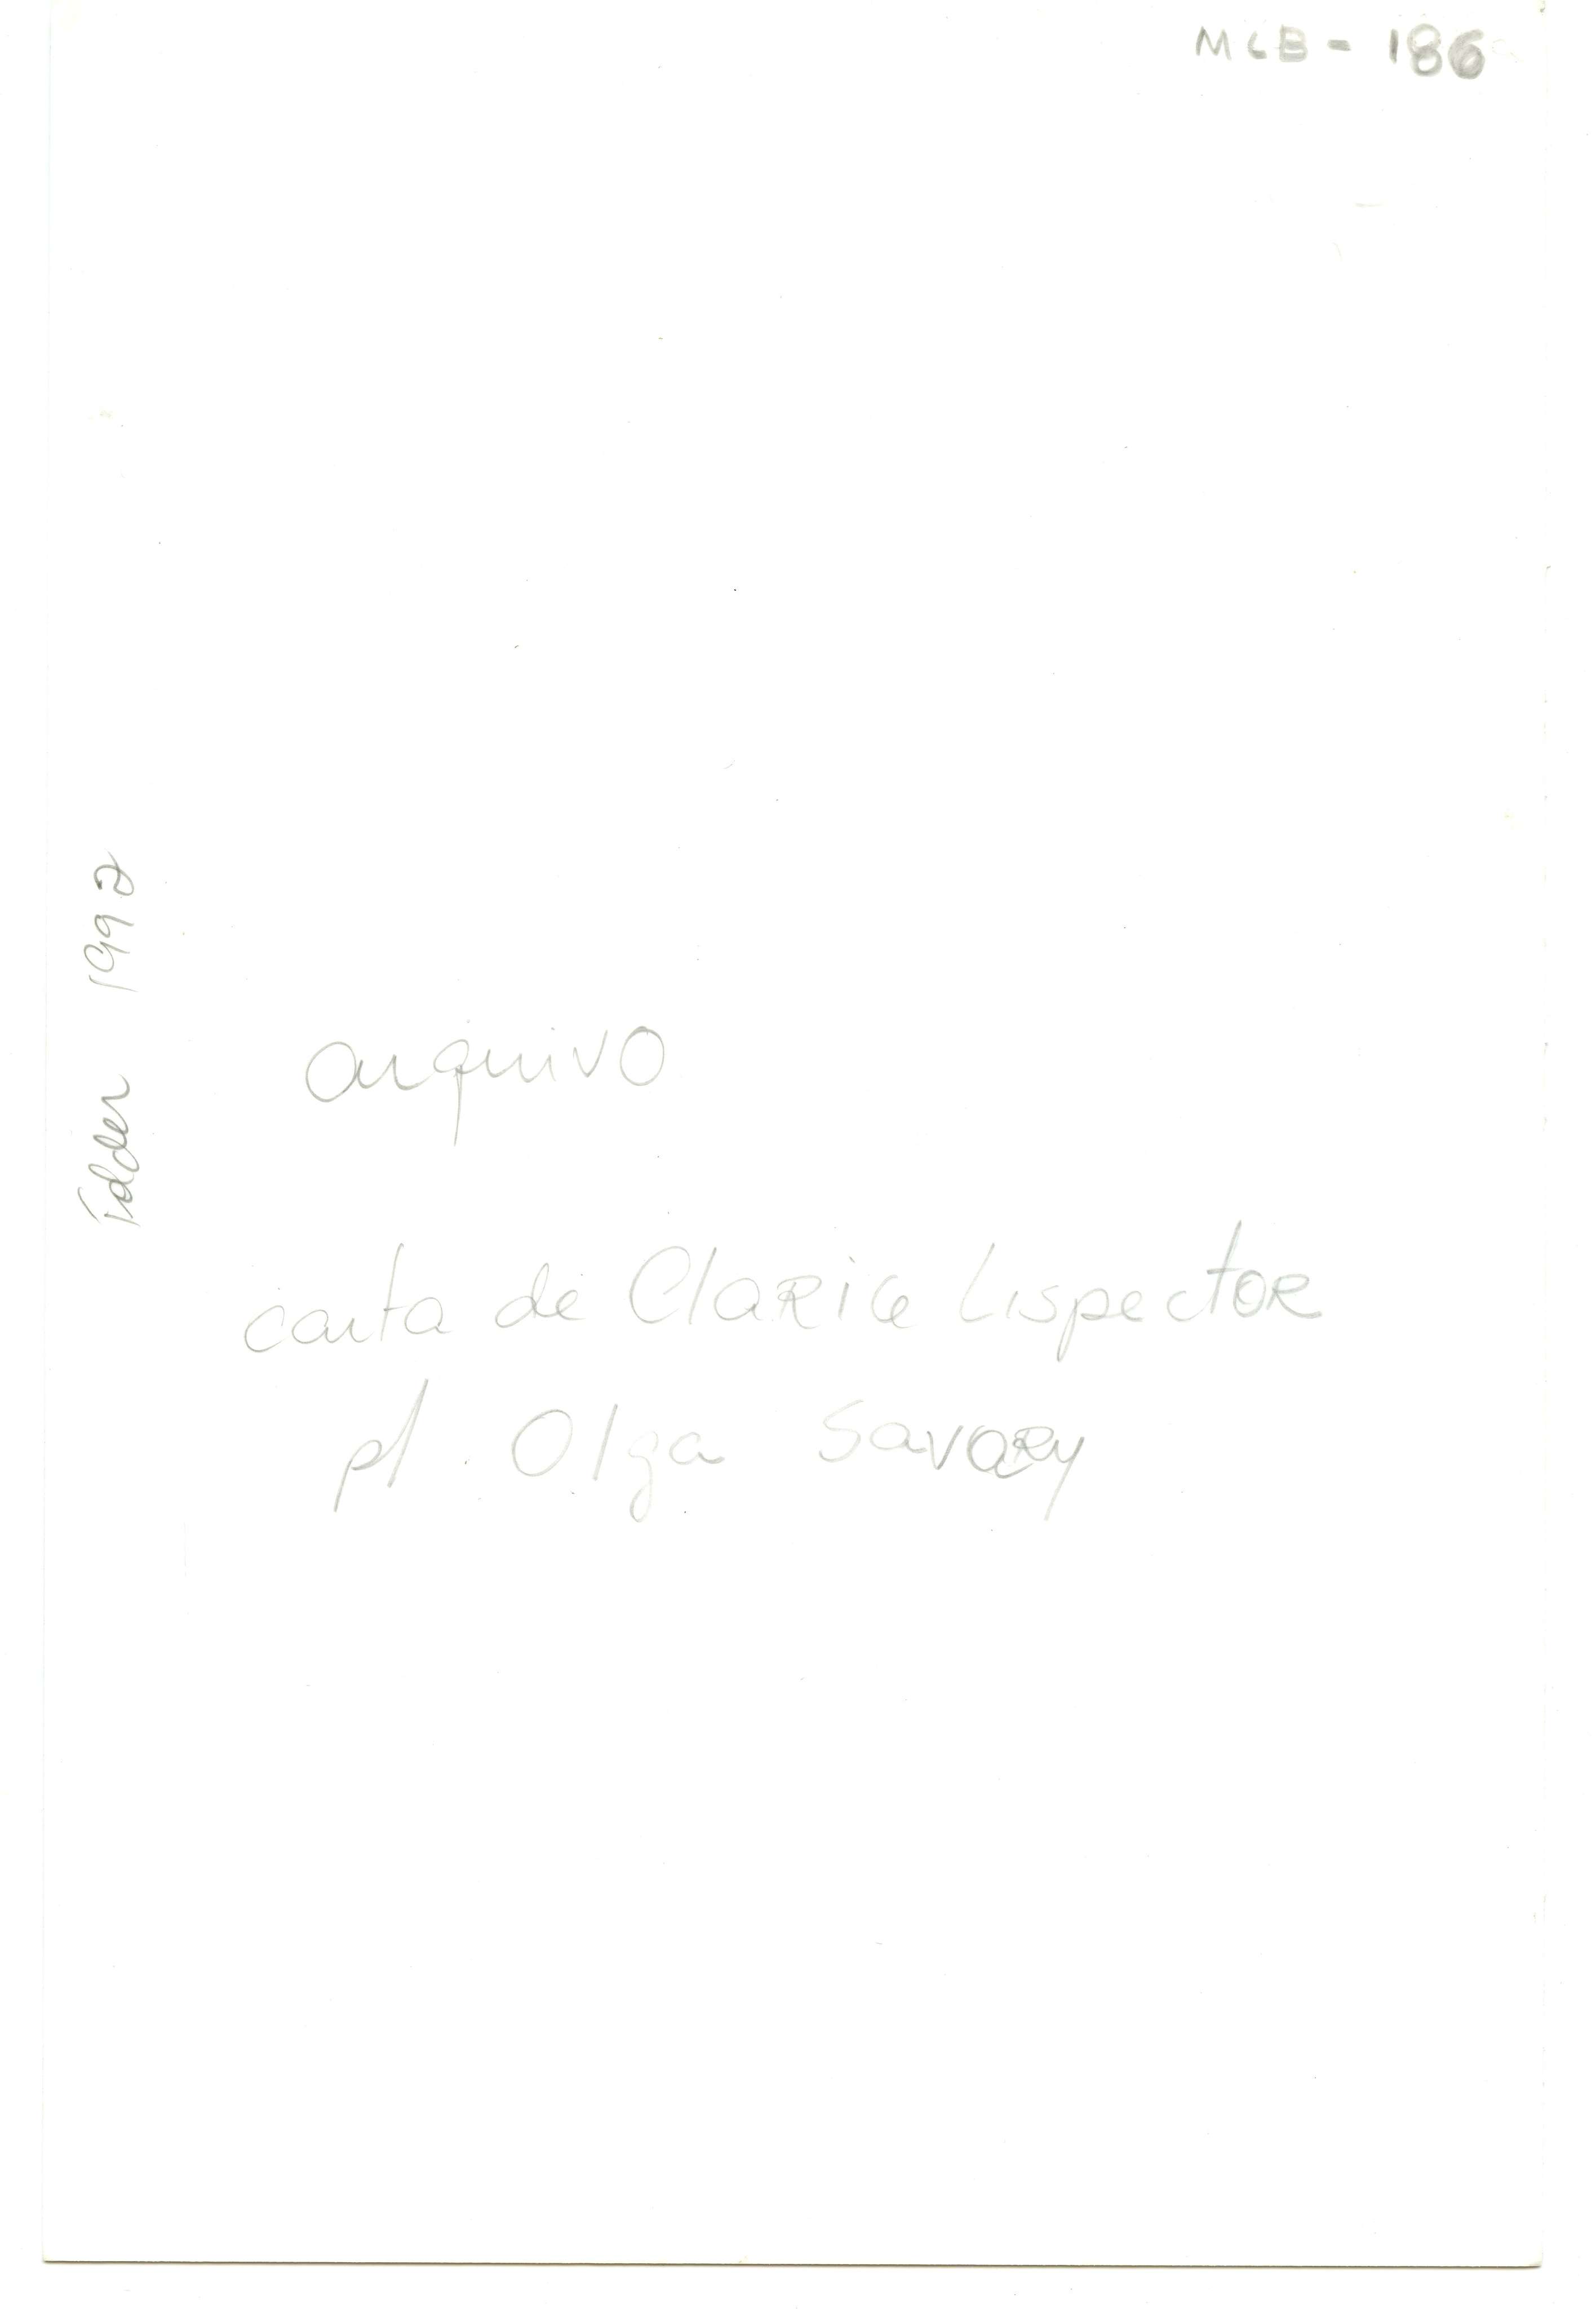 MCB - 186
folder 1992
arquivo
carta de Clarice Lispector
p/. Olga Savary